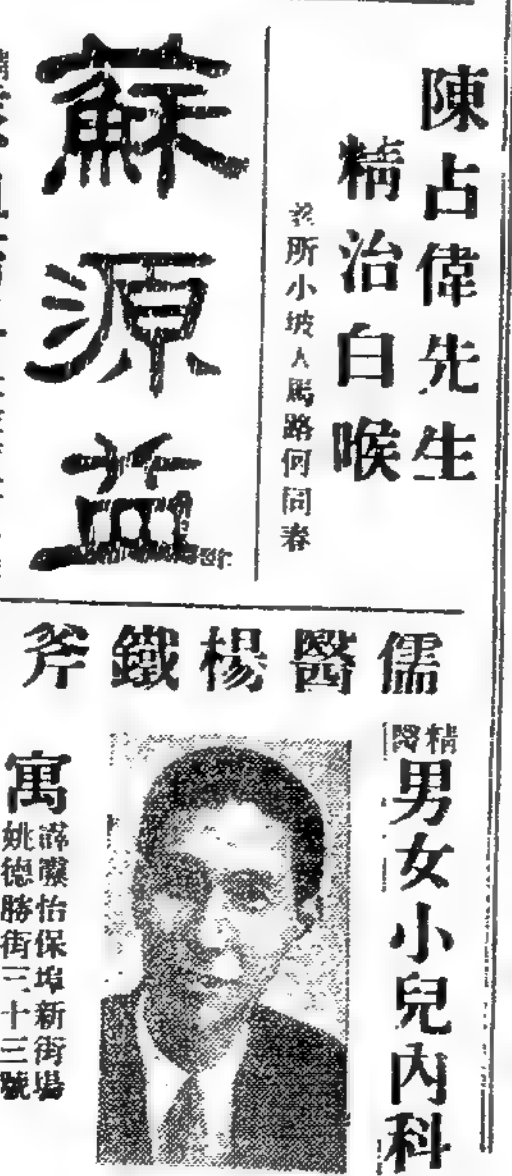 陳占偉先生
精治白喉
所小坡大馬路何同春
蘇源益
儒醫楊鐵斧
精醫
男女小兒內科
寓
霹靂怡保埠新街場
姚德勝街三十三號